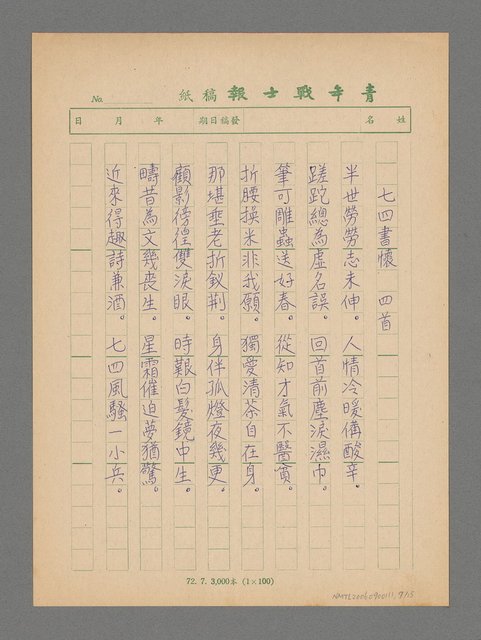 青年戰士報稿紙
No.
姓名 發稿日期 年 月 日
七四書懷 四首
半世勞勞志未伸。人情冷暖備酸辛。
蹉跎總為虛名誤。回首前塵淚濕巾。
筆可雕蟲送好春。從知才氣不醫貧。
折腰換米非我願。獨愛清茶自在身。
那堪垂老折釵荆。身伴孤燈夜幾更。
顧影徬徨雙淚眼。時艱白髮鏡中生。
疇昔為文幾喪生。星霜催迫夢猶驚。
近來得趣詩兼酒。七四風騷一小兵。
72. 7. 3,000本 (1×100)